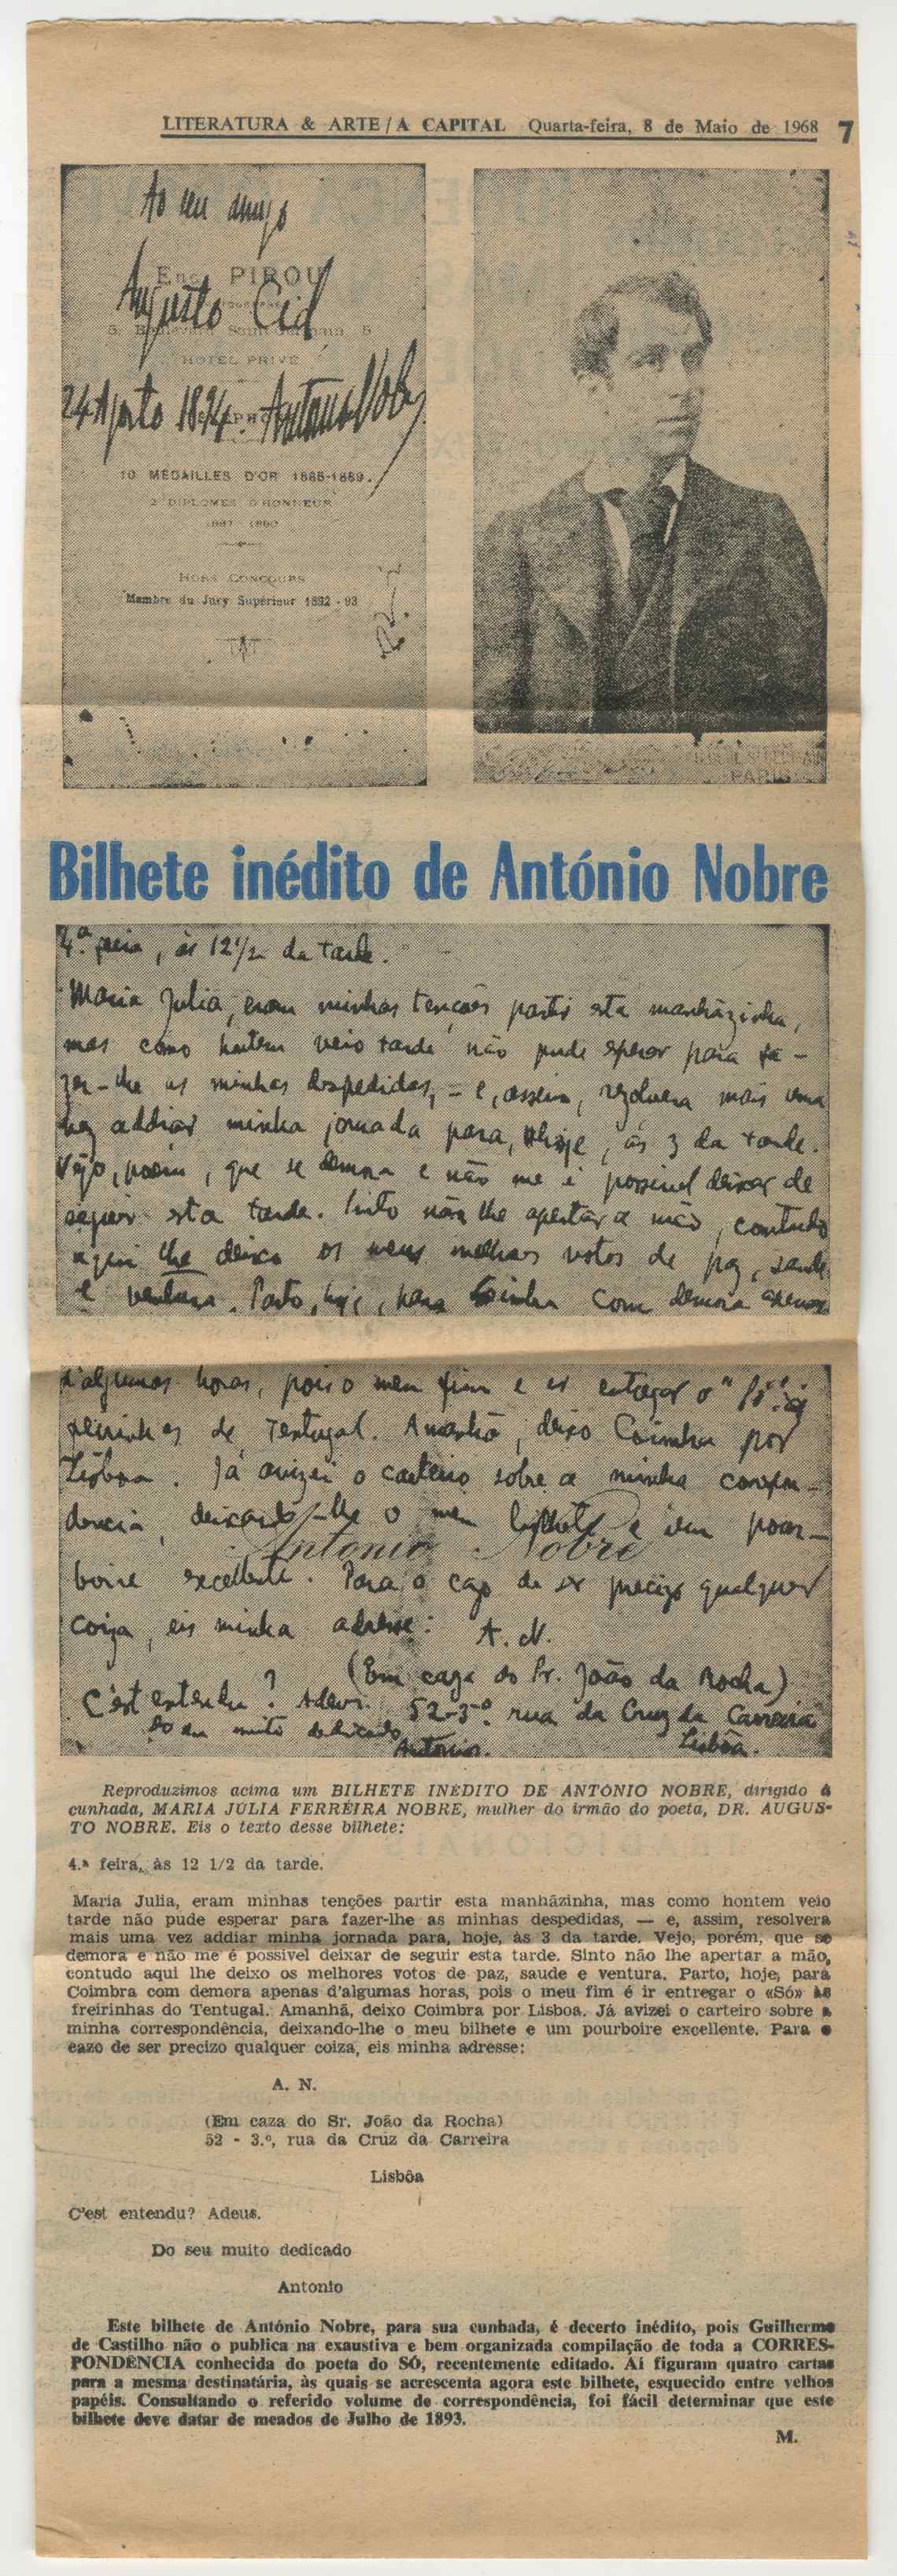 LITERATURA & ARTE / A CAPITAL Quarta-feira, 8 de Maio de 1968 7
Ao seu amigo
Eug. PIROU
Augusto Cid
5, Boulevard Saint-Germain, 5
HOTEL PRIVÉ
24 Agosto 1894. Antonio Nobre
10 MÉDAILLES D'OR 1885-1889.
2 DIPLOMES D'HONNEUR
HORS CONCOURS
Membre du Jury Supérieur 1892-93
PARIS
Bilhete inédito de António Nobre
4.ª feira, ás 12 1/2 da tarde.
Maria Julia, eram minhas tenções partir esta manhãzinha,
mas como hontem veio tarde não pude esperar para fa-
zer-lhe as minhas despedidas, — e, assim, resolvera mais uma
vez addiar minha jornada para, hoje, ás 3 da tarde.
Vejo, porém, que se demora e não me é possivel deixar de
seguir esta tarde. Sinto não lhe apertar a mão, contudo
aqui lhe deixo os meus melhores votos de paz, saude
e ventura. Parto, hoje, para Coimbra com demora apenas
d'algumas horas, pois o meu fim é ir entregar o "Só" ás
freirinhas de Tentugal. Amanhã, deixo Coimbra por
Lisboa. Já avizei o carteiro sobre a minha correspon-
dencia, deixando-lhe o meu bilhete e um pour-
Antonio Nobre
boire excellente. Para o cazo de ser precizo qualquer
coiza, eis minha adresse: A. N.
(Em caza do Sr. João da Rocha)
C'est entendu? Adeus. 52-3.º rua da Cruz da Carreira
Do seu muito dedicado Lisbôa.
Antonio.
Reproduzimos acima um BILHETE INÉDITO DE ANTÓNIO NOBRE, dirigido à
cunhada, MARIA JÚLIA FERREIRA NOBRE, mulher do irmão do poeta, DR. AUGUS-
TO NOBRE. Eis o texto desse bilhete:
4.ª feira, às 12 1/2 da tarde.
Maria Julia, eram minhas tenções partir esta manhãzinha, mas como hontem veio
tarde não pude esperar para fazer-lhe as minhas despedidas, — e, assim, resolvera
mais uma vez addiar minha jornada para, hoje, às 3 da tarde. Vejo, porém, que se
demora e não me é possivel deixar de seguir esta tarde. Sinto não lhe apertar a mão,
contudo aqui lhe deixo os melhores votos de paz, saude e ventura. Parto, hoje, para
Coimbra com demora apenas d'algumas horas, pois o meu fim é ir entregar o «Só» às
freirinhas do Tentugal. Amanhã, deixo Coimbra por Lisboa. Já avizei o carteiro sobre a
minha correspondência, deixando-lhe o meu bilhete e um pourboire excellente. Para o
cazo de ser precizo qualquer coiza, eis minha adresse:
A. N.
(Em caza do Sr. João da Rocha)
52 - 3.º, rua da Cruz da Carreira
Lisbôa
C'est entendu? Adeus.
Do seu muito dedicado
Antonio
Este bilhete de António Nobre, para sua cunhada, é decerto inédito, pois Guilherme
de Castilho não o publica na exaustiva e bem organizada compilação de toda a CORRES-
PONDÊNCIA conhecida do poeta do SÓ, recentemente editado. Aí figuram quatro cartas
para a mesma destinatária, às quais se acrescenta agora este bilhete, esquecido entre velhos
papéis. Consultando o referido volume de correspondência, foi fácil determinar que este
bilhete deve datar de meados de Julho de 1893.
M.